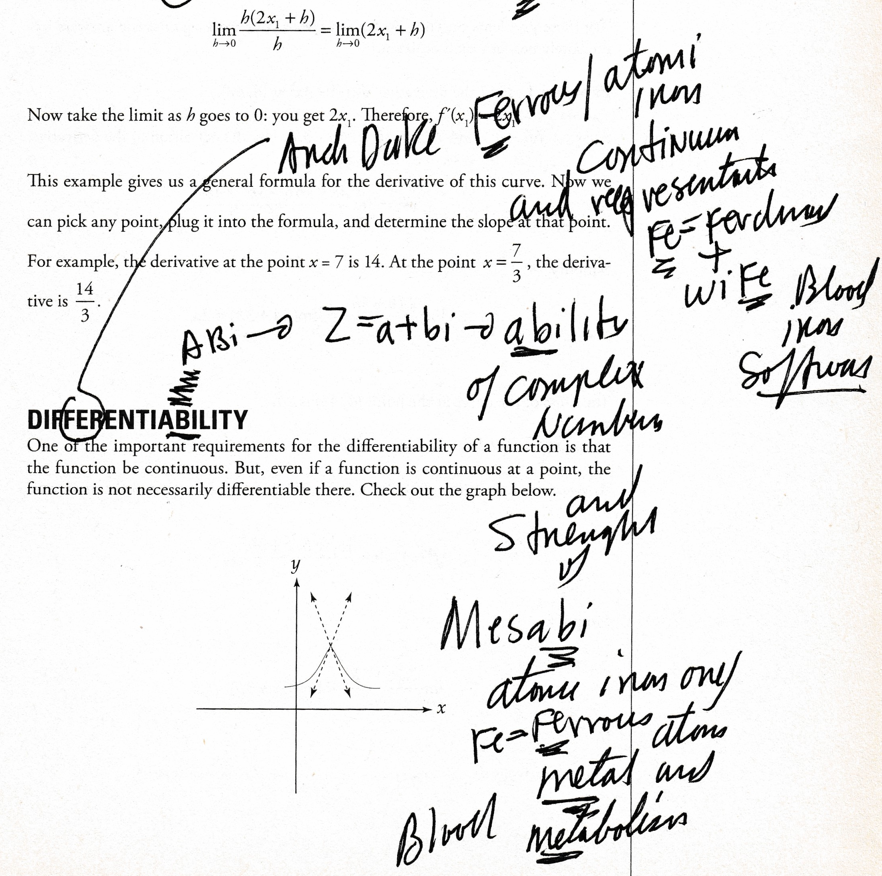 lim h→0 h(2x₁ + h) / h = lim h→0 (2x₁ + h)
Now take the limit as h goes to 0: you get 2x₁. Therefore, f′(x₁) = 2x₁.
Ferrous / atomi
iron
Arch Duke
Continuum
This example gives us a general formula for the derivative of this curve. Now we
and
can pick any point, plug it into the formula, and determine the slope at that point.
Fe=Ferdinand
+
wiFe
For example, the derivative at the point x = 7 is 14. At the point x = 7/3, the deriva-
tive is 14/3.
Blood
iron
Software
ABi → Z=a+bi → ability
of complex
Numbers
DIFFERENTIABILITY
One of the important requirements for the differentiability of a function is that
the function be continuous. But, even if a function is continuous at a point, the
function is not necessarily differentiable there. Check out the graph below.
and
Strenght
of
y
x
Mesabi
atomic iron ore
Fe=Ferrous atom
metal and
Blood metabolism